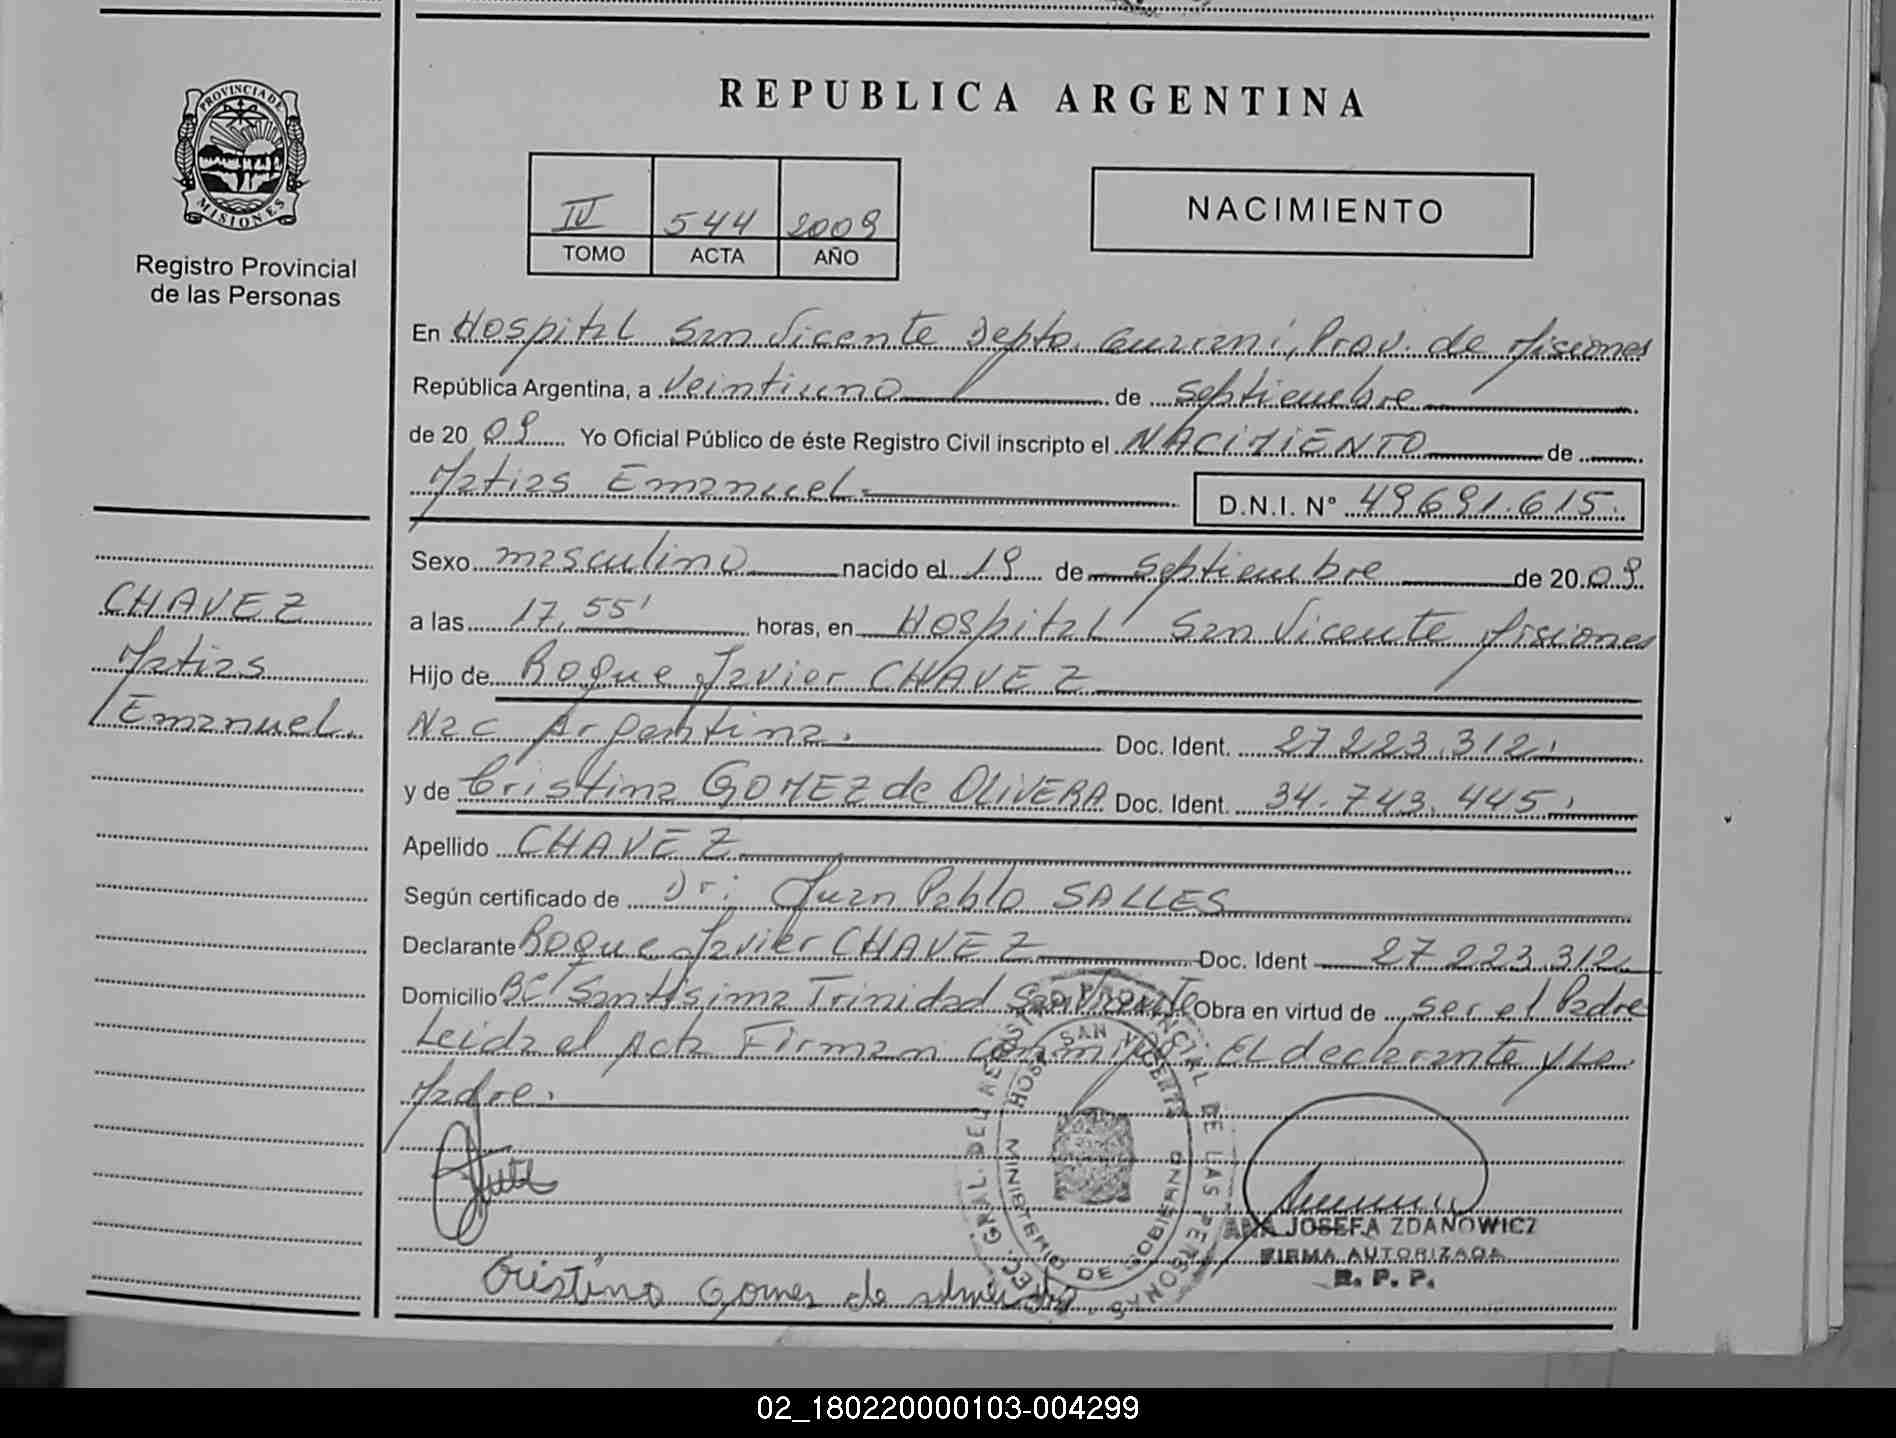 PROVINCIA DE
MISIONES
Registro Provincial
de las Personas
CHAVEZ
Matias
Emanuel.
REPUBLICA ARGENTINA
IV 544 2009
TOMO ACTA AÑO
NACIMIENTO
En Hospital San Vicente Depto. Guarani, Prov. de Misiones
República Argentina, a veintiuno de septiembre
de 2009 Yo Oficial Público de éste Registro Civil inscripto el NACIMIENTO de
Matias Emanuel. D.N.I. Nº 49691.615.
Sexo masculino nacido el 19 de septiembre de 2009.
a las 17,55' horas, en Hospital San Vicente Misiones
Hijo de Roque Javier CHAVEZ
Nac Argentina. Doc. Ident. 27223.312.
y de Cristina GOMEZ de OLIVERA Doc. Ident. 34.743.445.
Apellido CHAVEZ
Según certificado de Dr: Juan Pablo SALLES
Declarante Roque Javier CHAVEZ Doc. Ident 27223312.
Domicilio Bº Santisima Trinidad San Vicente Obra en virtud de ser el Padre
Leida el Acta Firman conmigo El declarante y La
Madre.
DEL REGISTRO PROVINCIAL DE LAS PERSONAS
HOSP SAN VICENTE
MINISTERIO DE GOBIERNO
ANA JOSEFA ZDANOWICZ
FIRMA AUTORIZADA
R. P. P.
Cristina Gomes de
02_180220000103-004299